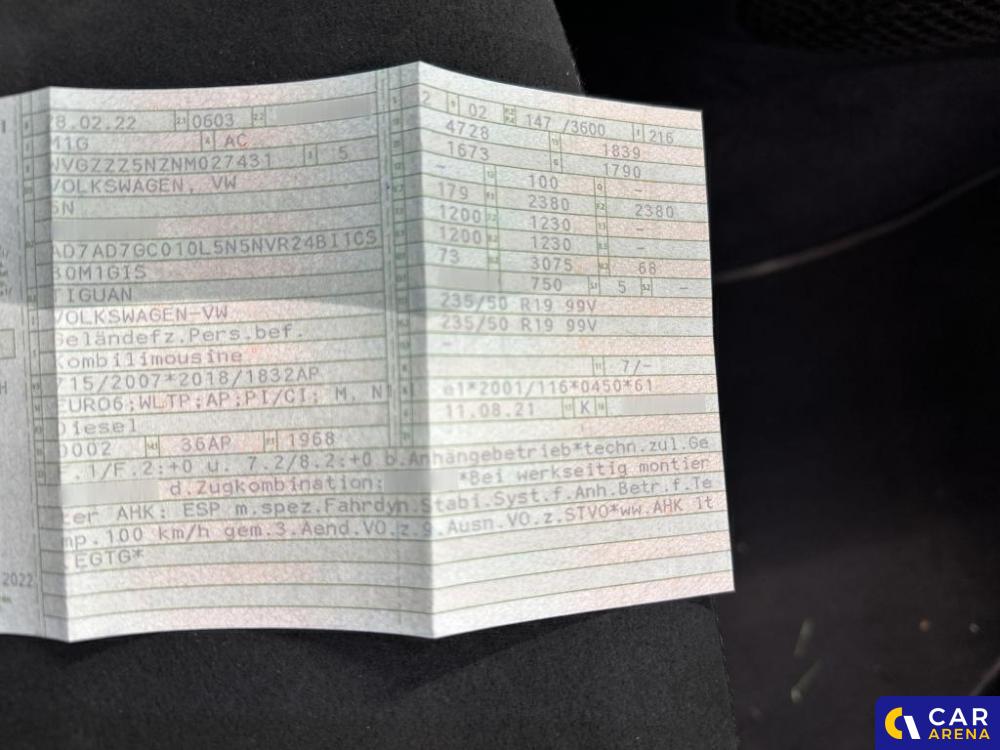 8.02.22 0603
M1G AC
WVGZZZ5NZNM027431 5
VOLKSWAGEN, VW
5N
AD7AD7GC010L5N5NVR24BI1CS
B0M1GIS
TIGUAN
VOLKSWAGEN-VW
Geländefz.Pers.bef.
Kombilimousine
715/2007*2018/1832AP
EURO6;WLTP;AP;PI/CI; M, N
Diesel
0002 36AP 1968
2 02 147 /3600 216
4728 1839
1673 1790
- 100 -
179 2380 2380
1200 1230 -
1200 1230 -
73 3075 68
750 5 -
235/50 R19 99V
235/50 R19 99V
-
7/-
e1*2001/116*0450*61
11.08.21 K
.1/F.2:+0 u. 7.2/8.2:+0 b.Anhängebetrieb*techn.zul.Ge
d.Zugkombination: *Bei werkseitig montier
ter AHK: ESP m.spez.Fahrdyn.Stabi.Syst.f.Anh.Betr.f.Te
mp.100 km/h gem.3.Aend.VO.z.9.Ausn.VO.z.STVO*ww.AHK lt
.EGTG*
2022
CAR
ARENA